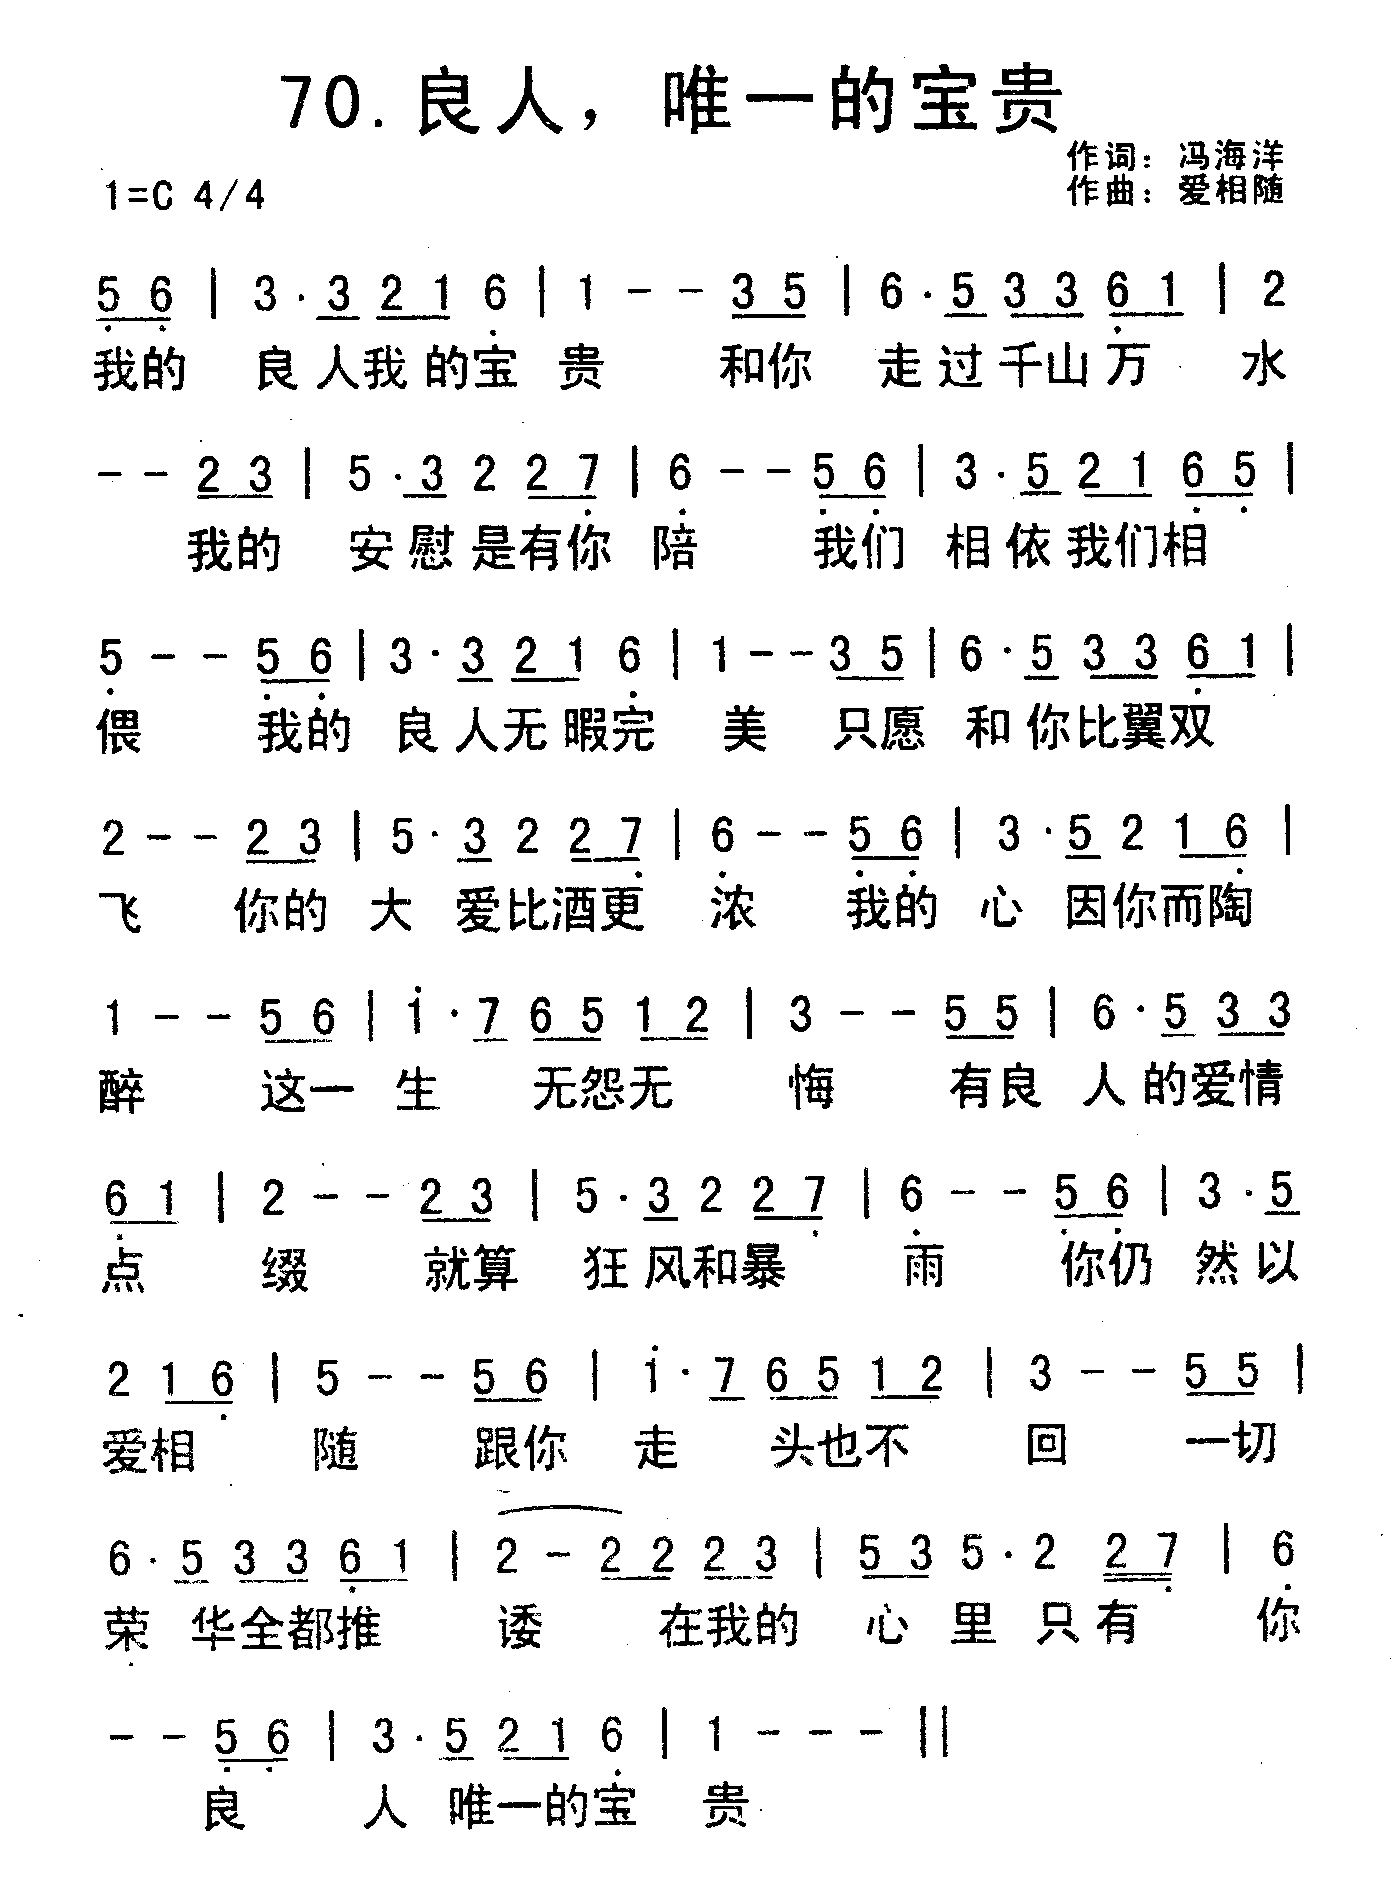 70.良人，唯一的宝贵
作词：冯海洋
1=C 4/4
作曲：爱相随
5 6 | 3 · 3 2 1 6 | 1 - - 3 5 | 6 · 5 3 3 6 1 | 2
我的 良人我的宝贵 和你 走过千山万水
- - 2 3 | 5 · 3 2 2 7 | 6 - - 5 6 | 3 · 5 2 1 6 5 |
我的 安慰是有你陪 我们 相依我们相
5 - - 5 6 | 3 · 3 2 1 6 | 1 - - 3 5 | 6 · 5 3 3 6 1 |
偎 我的 良人无暇完美 只愿 和你比翼双
2 - - 2 3 | 5 · 3 2 2 7 | 6 - - 5 6 | 3 · 5 2 1 6 |
飞 你的 大爱比酒更浓 我的 心因你而陶
1 - - 5 6 | i · 7 6 5 1 2 | 3 - - 5 5 | 6 · 5 3 3
醉 这一生 无怨无悔 有良人的爱情
6 1 | 2 - - 2 3 | 5 · 3 2 2 7 | 6 - - 5 6 | 3 · 5
点缀 就算 狂风和暴雨 你仍然以
2 1 6 | 5 - - 5 6 | i · 7 6 5 1 2 | 3 - - 5 5 |
爱相随 跟你走 头也不回 一切
6 · 5 3 3 6 1 | 2 - 2 2 2 3 | 5 3 5 · 2 2 7 | 6
荣华全都推诿 在我的 心里只有你
- - 5 6 | 3 · 5 2 1 6 | 1 - - - ||
良人 唯一的宝贵